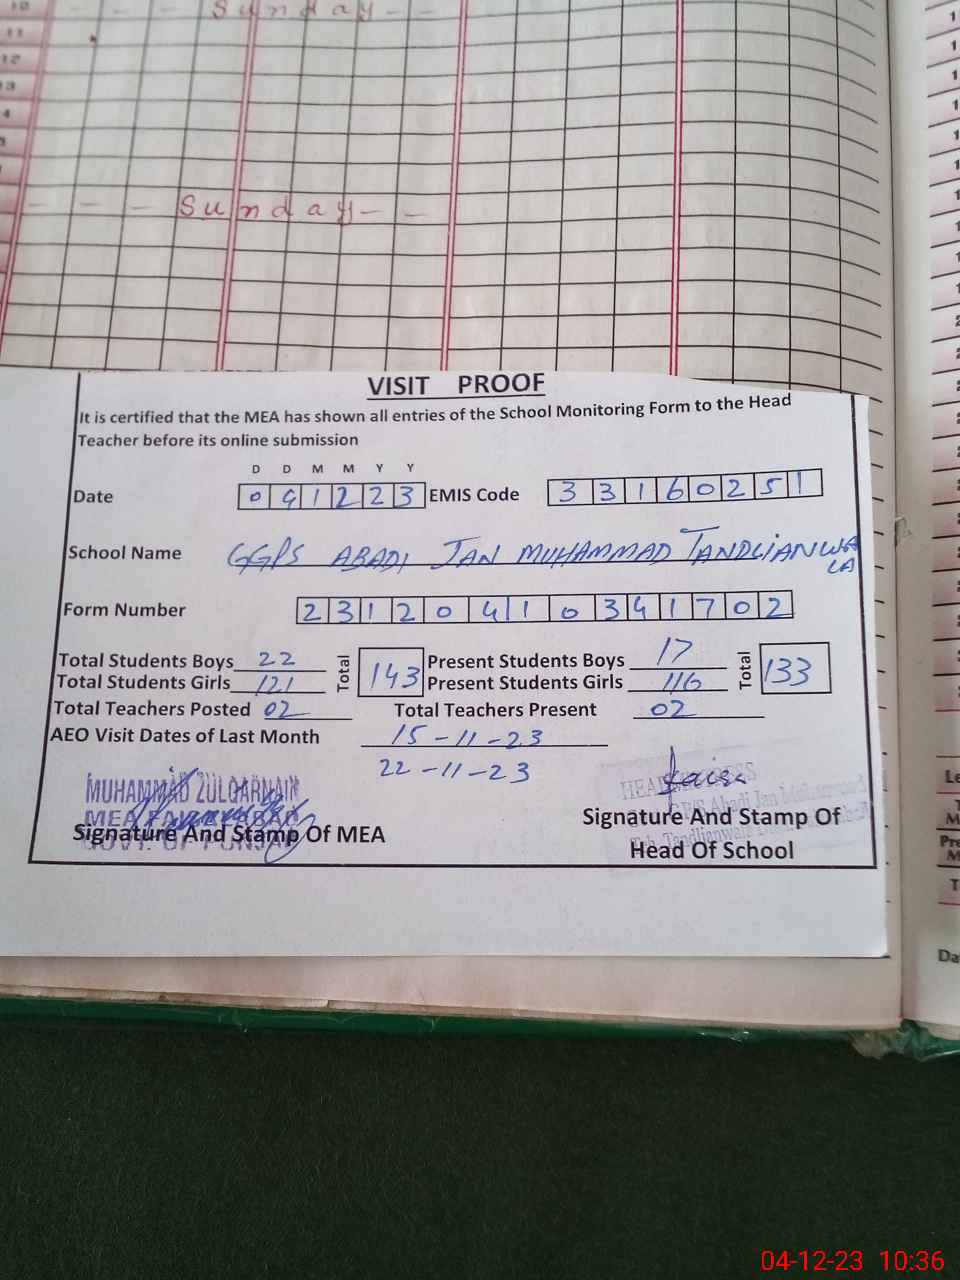 10 - - - Sunday - -
11
12
13
4
- - - Sunday - -
VISIT PROOF
It is certified that the MEA has shown all entries of the School Monitoring Form to the Head
Teacher before its online submission
D D M M Y Y
Date 041223 EMIS Code 33160251
School Name GGPS ABADI JAN MUHAMMAD TANDLIANWA
LA
Form Number 23120410341702
Total Students Boys 22 Total 143 Present Students Boys 17 Total 133
Total Students Girls 121 Present Students Girls 116
Total Teachers Posted 02 Total Teachers Present 02
AEO Visit Dates of Last Month 15-11-23
22-11-23
MUHAMMAD ZULQARNAIN
MEA FAISALABAD
GOVT. OF PUNJAB
Signature And Stamp Of MEA
HEADMISTRESS
GGPS Abadi Jan Muhammad
Teh. Tandlianwala
Signature And Stamp Of
Head Of School
04-12-23 10:36